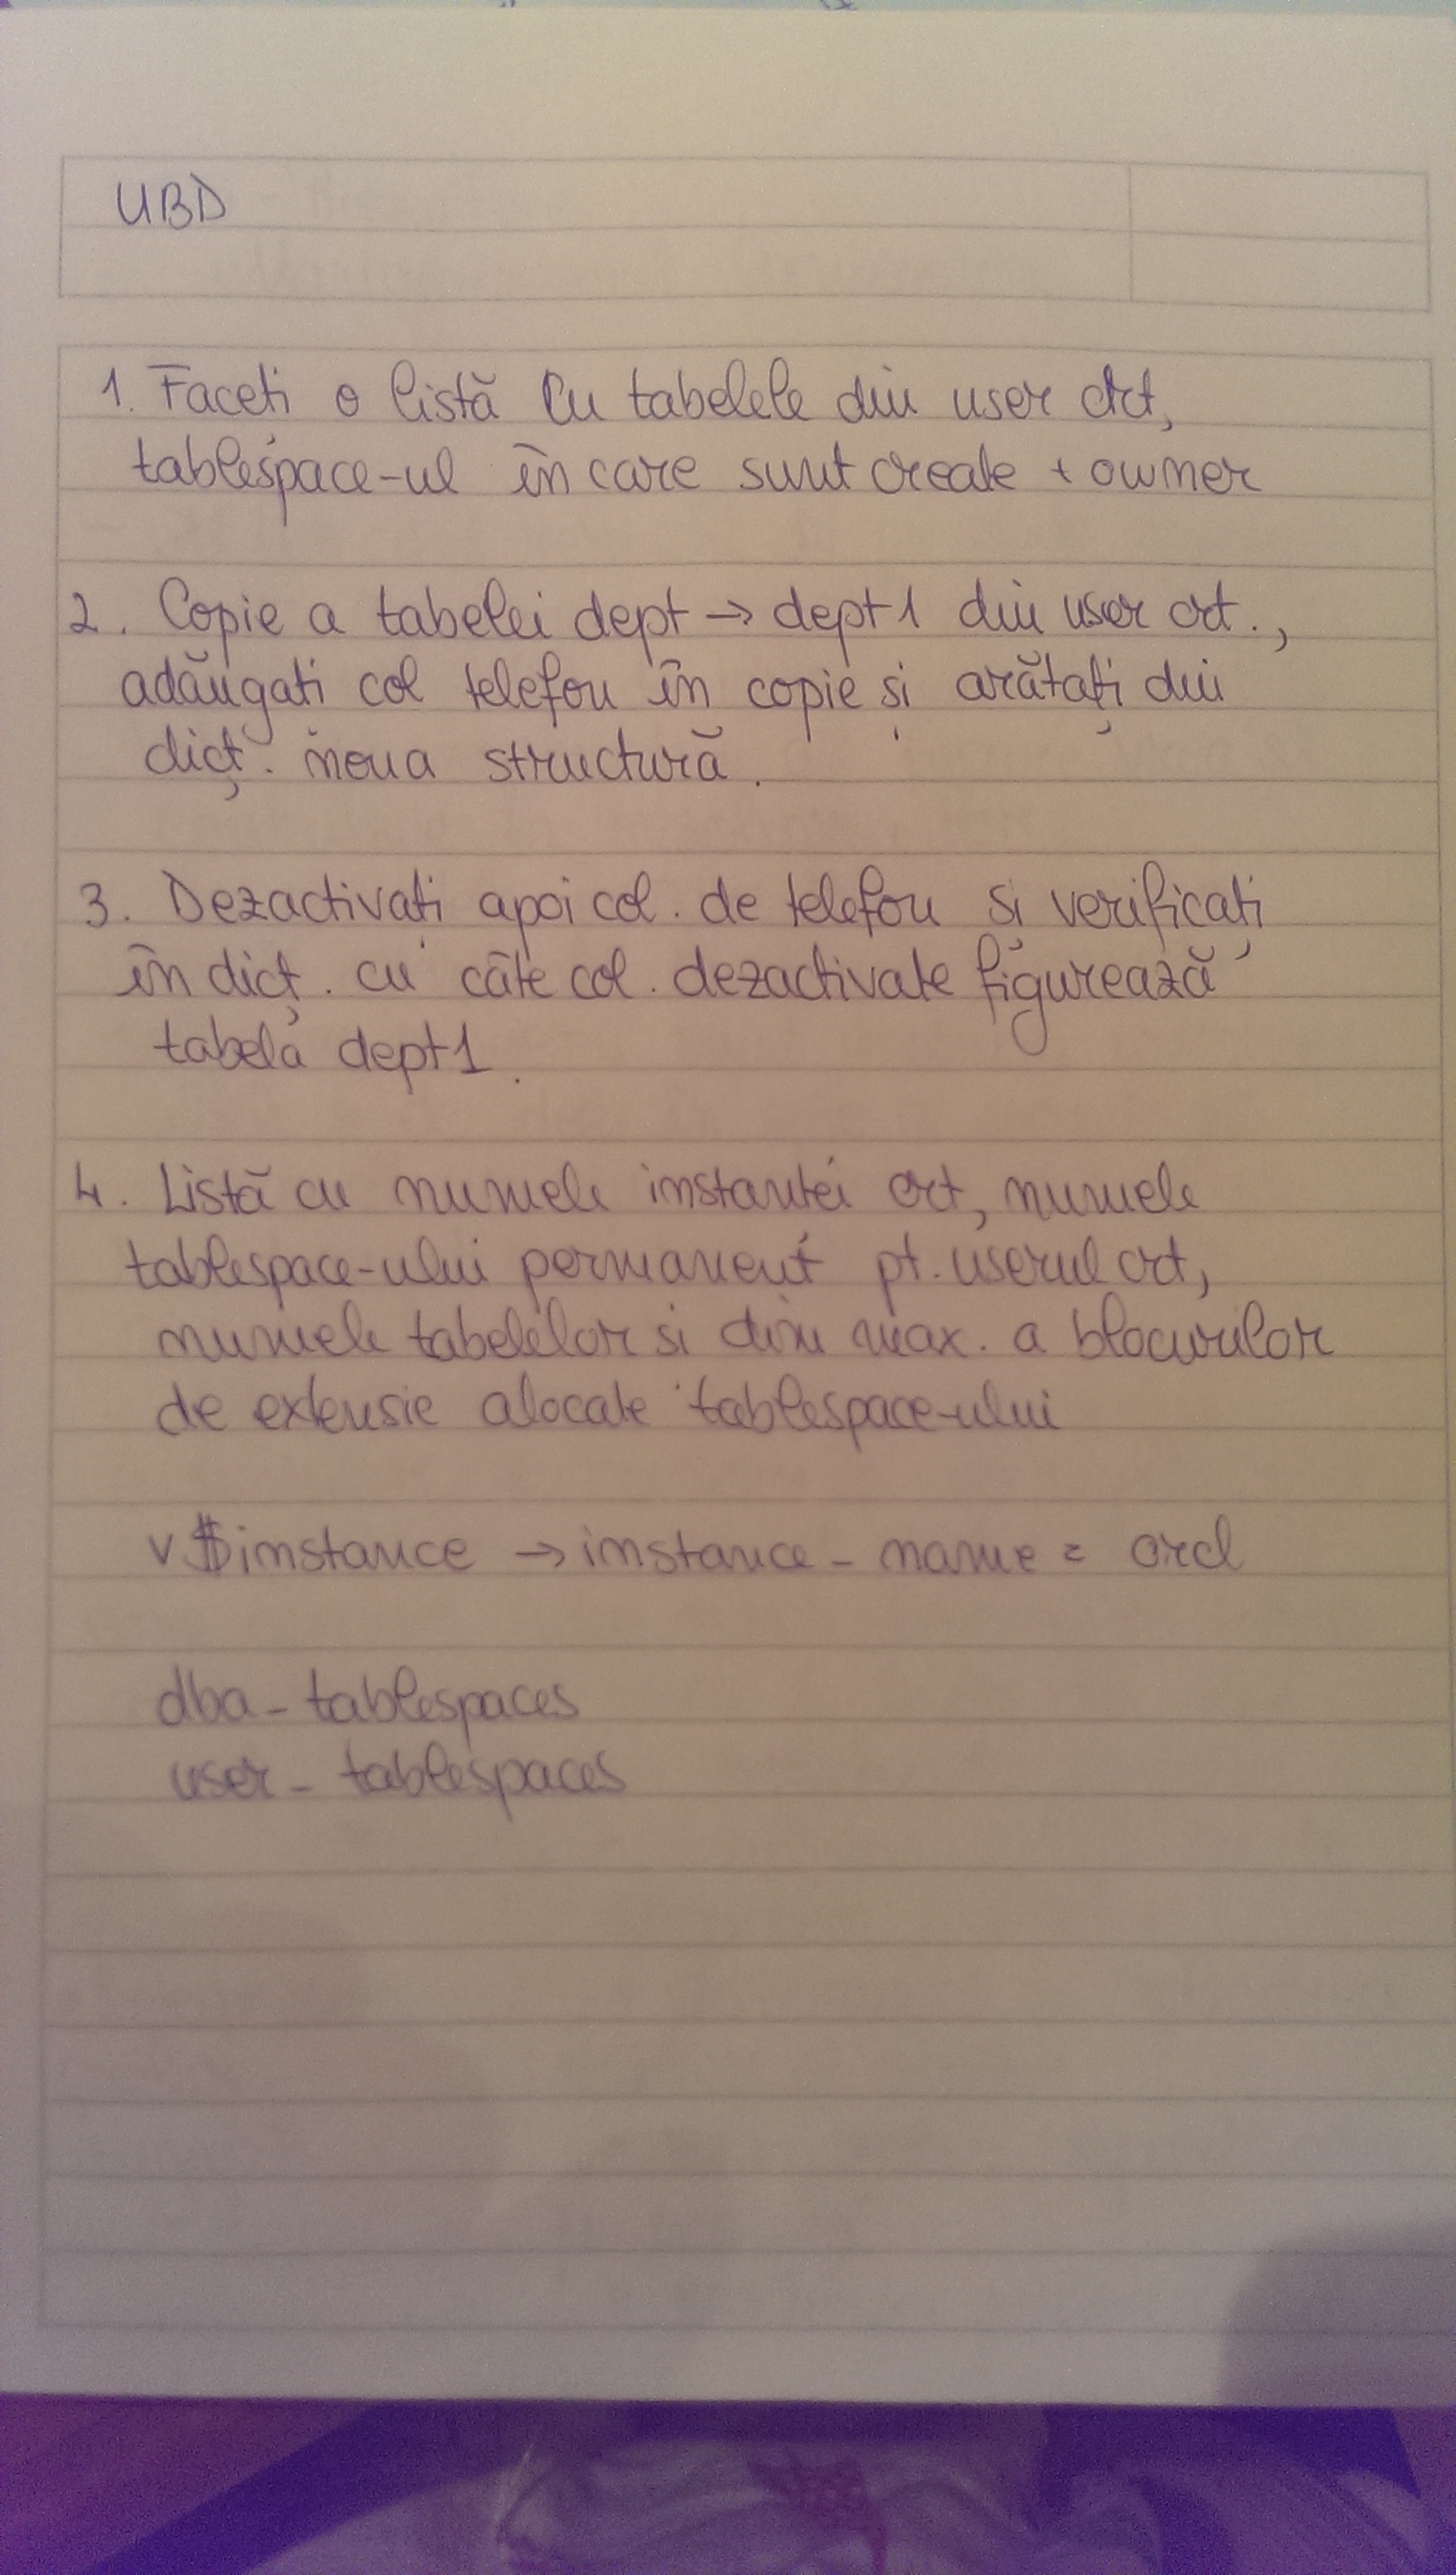 UBD
1. Faceti o listă cu tabelele din user crt,
tablespace-ul în care sunt create + owner
2. Copie a tabelei dept → dept1 din user crt.,
adăugati col telefon în copie și arătați din
dicț. noua structură.
3. Dezactivați apoi col. de telefon și verificați
în dicț. cu câte col. dezactivate figurează
tabela dept1.
4. Listă cu numele instantei crt, numele
tablespace-ului permanent pt. userul crt,
numele tabelelor si dim max. a blocurilor
de extensie alocate tablespace-ului
v$instance → instance_name = orcl
dba_tablespaces
user_tablespaces